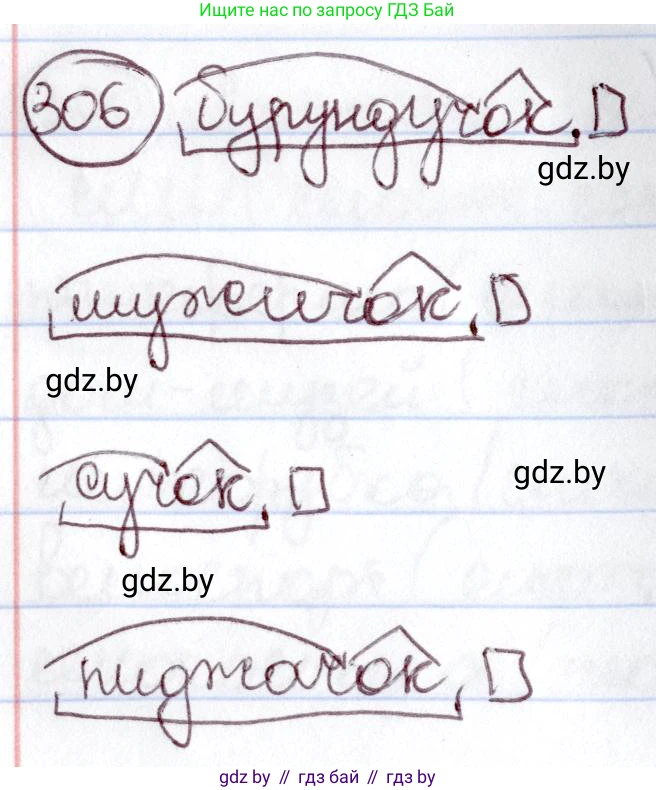 Ищите нас по запросу ГДЗ Бай
306 бурундучок,
gdz.by
мужичок,
gdz.by
сучок,
gdz.by
gdz.by
пиджачок,
gdz.by // гдз бай // гдз by